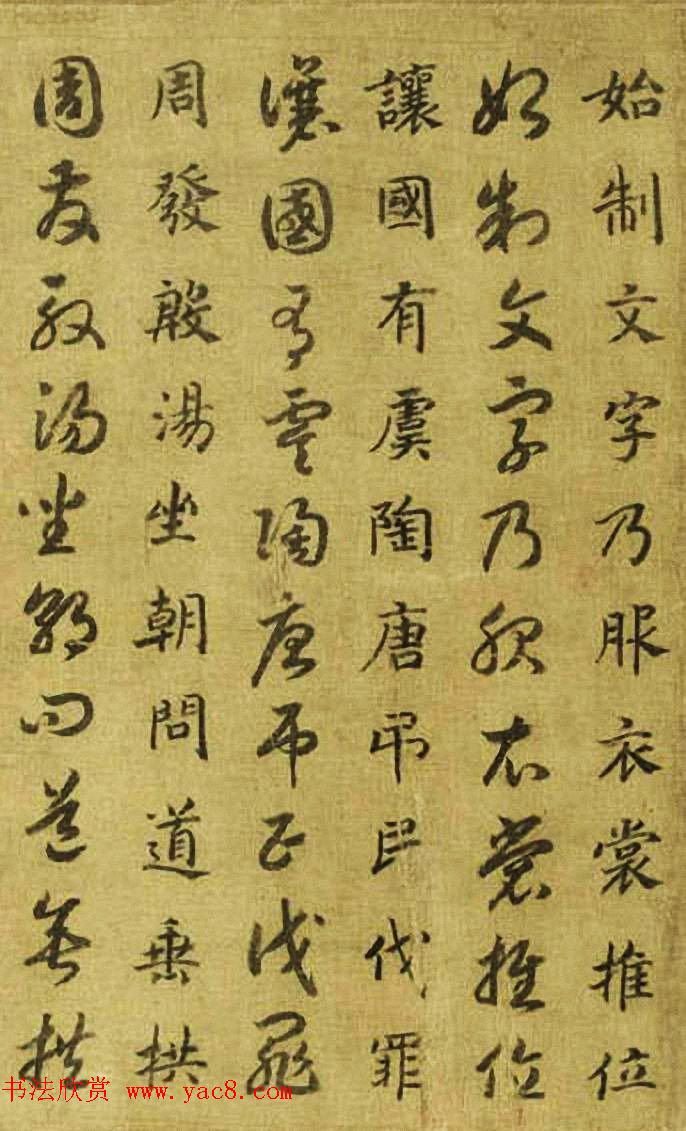 始制文字乃服衣裳推位
始制文字乃服衣裳推位
讓國有虞陶唐弔民伐罪
讓國有虞陶唐弔民伐罪
周發殷湯坐朝問道垂拱
周發殷湯坐朝問道垂拱
书法欣赏 www.yac8.com